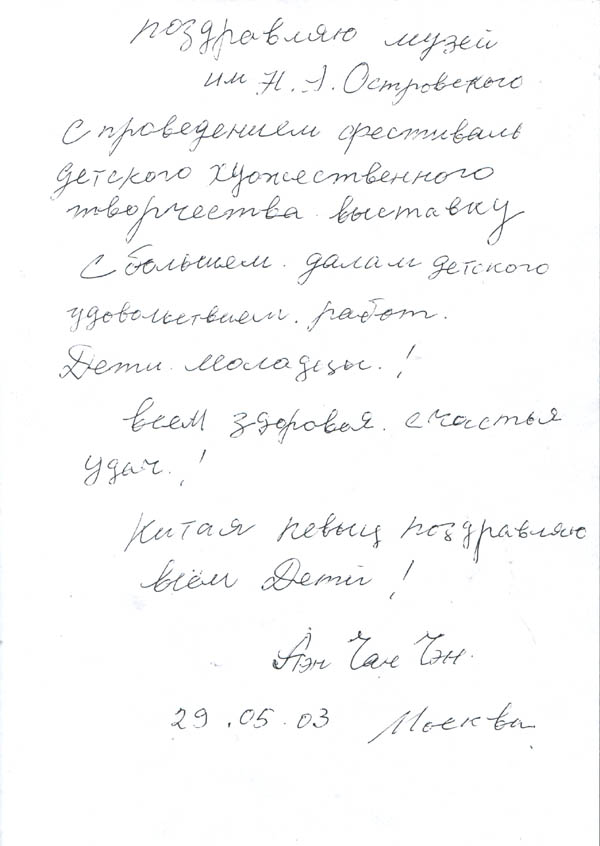 поздравляю музей
им Н. А. Островского
с проведением фестиваль
детского художественного
творчества. выставку
с большем. далам детского
удовольствием. работ.
Дети. моладцы. !
всем здоровья. счастья
удач. !
китая певыц поздравляю
всем Дети !
Чан Чэн.
29 .05 .03 Москва